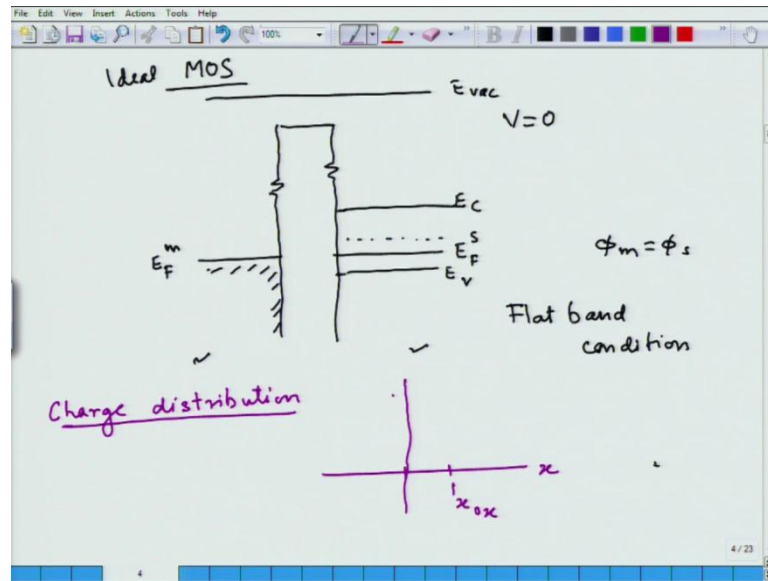 File Edit View Insert Actions Tools Help
100%
B I
Ideal MOS
Evac
V=0
Ec
E_F^m
E_F^s
Ev
ϕm = ϕs
Flat band
condition
Charge distribution
x
x_ox
4/23
4